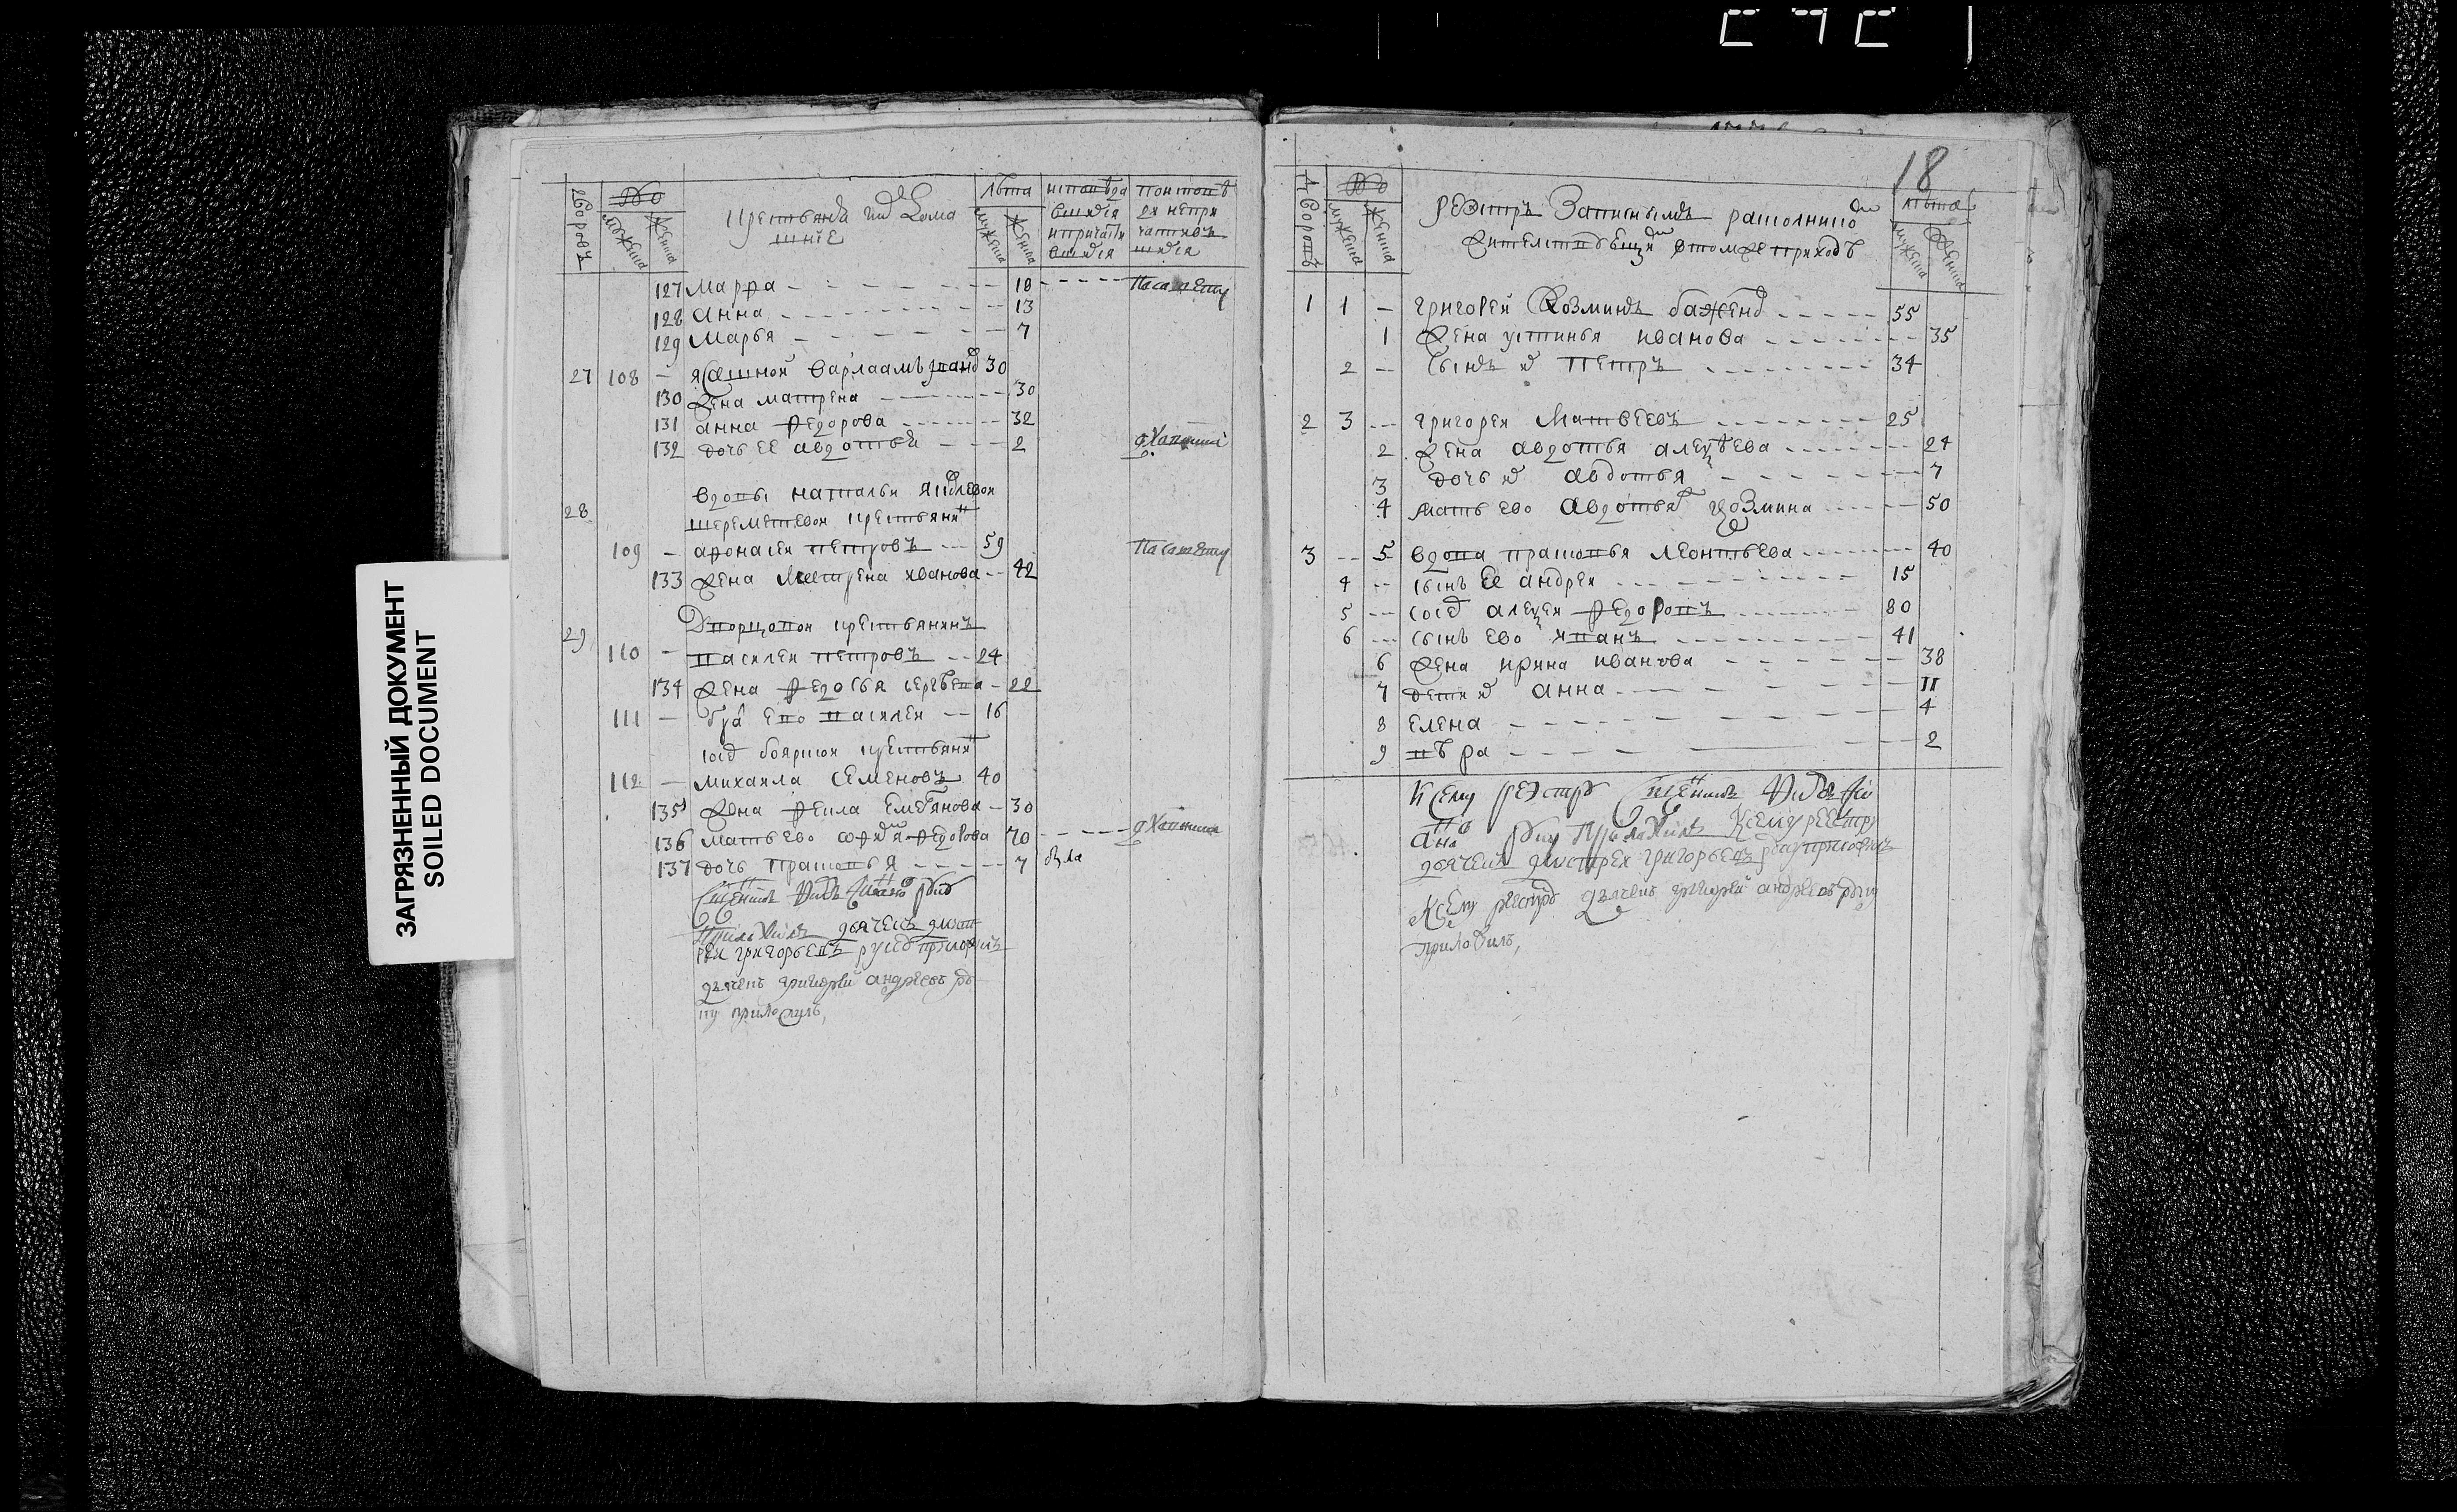 ЗАГРЯЗНЕННЫЙ ДОКУМЕНТ
SOILED DOCUMENT
дворовъ
мужеска
женска
крестьяня и их дома
шние
лета
мужеска
женска
исповеда
вшияся
и причасти
вшияся
127 Марѳа 18
128 Анна 13
129 Марья 7
27 108 ясашной Варлаамъ 30
130 жена матрена 30
131 анна федорова 32
132 дочь ее авдотья 2
28 вдовы натальи яковлевой
шереметевой крестьянин
109 афонасеи петровъ 59
133 жена Матрена иванова 42
29 Дворцовои крестьянинъ
110 василеи петровъ 24
134 жена федосья сергеева 22
111 бра ево василеи 16
сосед боярскои крестьянин
112 михаила семеновъ 40
135 жена фекла емельянова 30
136 мать ево софия федорова 70
137 дочь прасковья 7
дьячекъ дмит
реи григорьевъ руку приложилъ
дьячекъ григорей андреевъ ру
ку приложилъ,
18
дворовъ
мужеска
женска
реэстръ Записнымъ раскольнико
жителствующи в томже приходе
лета
мужеска
женска
1 1 григореи Козминъ баженов 55
1 жена устинья иванова 35
2 сынъ их петръ 34
2 3 григореи Матвеевъ 25
2 жена авдотья алексеева 24
3 дочь их авдотья 7
4 мать ево авдотья козмина 50
3 5 вдова прасковья леонтьева 40
4 сынъ ее андреи 15
5 сосед алексеи федоровъ 80
6 сынъ ево иванъ 41
6 жена ирина иванова 38
7 дети их анна 11
8 елена 4
9 вера 2
К сему реэстру
К сему реестру
дьячекъ дмитреи григорьевъ руку приложилъ
К сему реестру дьячекъ григорей андреевъ руку
приложилъ,